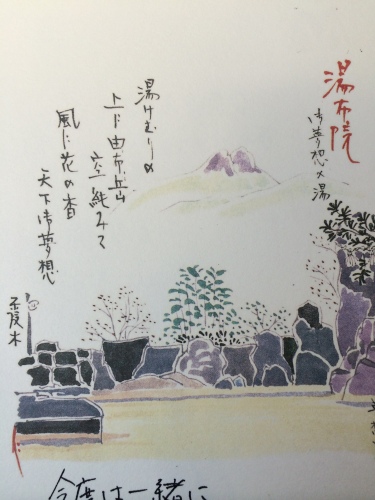 湯布院
御夢想の湯
湯けむりの
上に由布岳
空純みて
風に花の香
天下御夢想
今度は一緒に